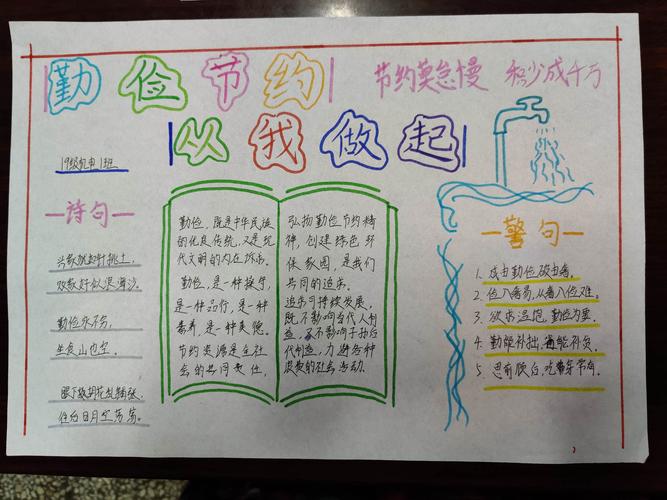 勤俭节约
节约莫怠慢 积少成千万
从我做起
19级机电1班
诗句
兴家犹如针挑土,
败家好似浪淘沙。
勤俭永不穷,
坐食山也空。
眼下胡花乱铺张,
往后日月空荡荡。
勤俭,既是中华民族
的优良传统,又是现
代文明的内在
勤俭,是一种操守,
是一种品行,是一种
素养,是一种美德。
节约资源是全社
会的共同责任,
弘扬勤俭节约精
神,创建绿色环
保家园,是我们
共同的追求。
追求可持续发展,
既不影响当代人制
造,又不影响子孙后
代制造,力避各种
浪费的社会活动。
警句
1. 成由勤俭破由奢,
2. 俭入奢易,从奢入俭难。
3. 欲求温饱,勤俭为要。
4. 勤能补拙,俭能补贫。
5. 思前顾后,吃穿常有。